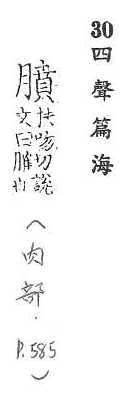 30四聲篇海
膹扶吻切說文曰臛也
(肉部.P.585)